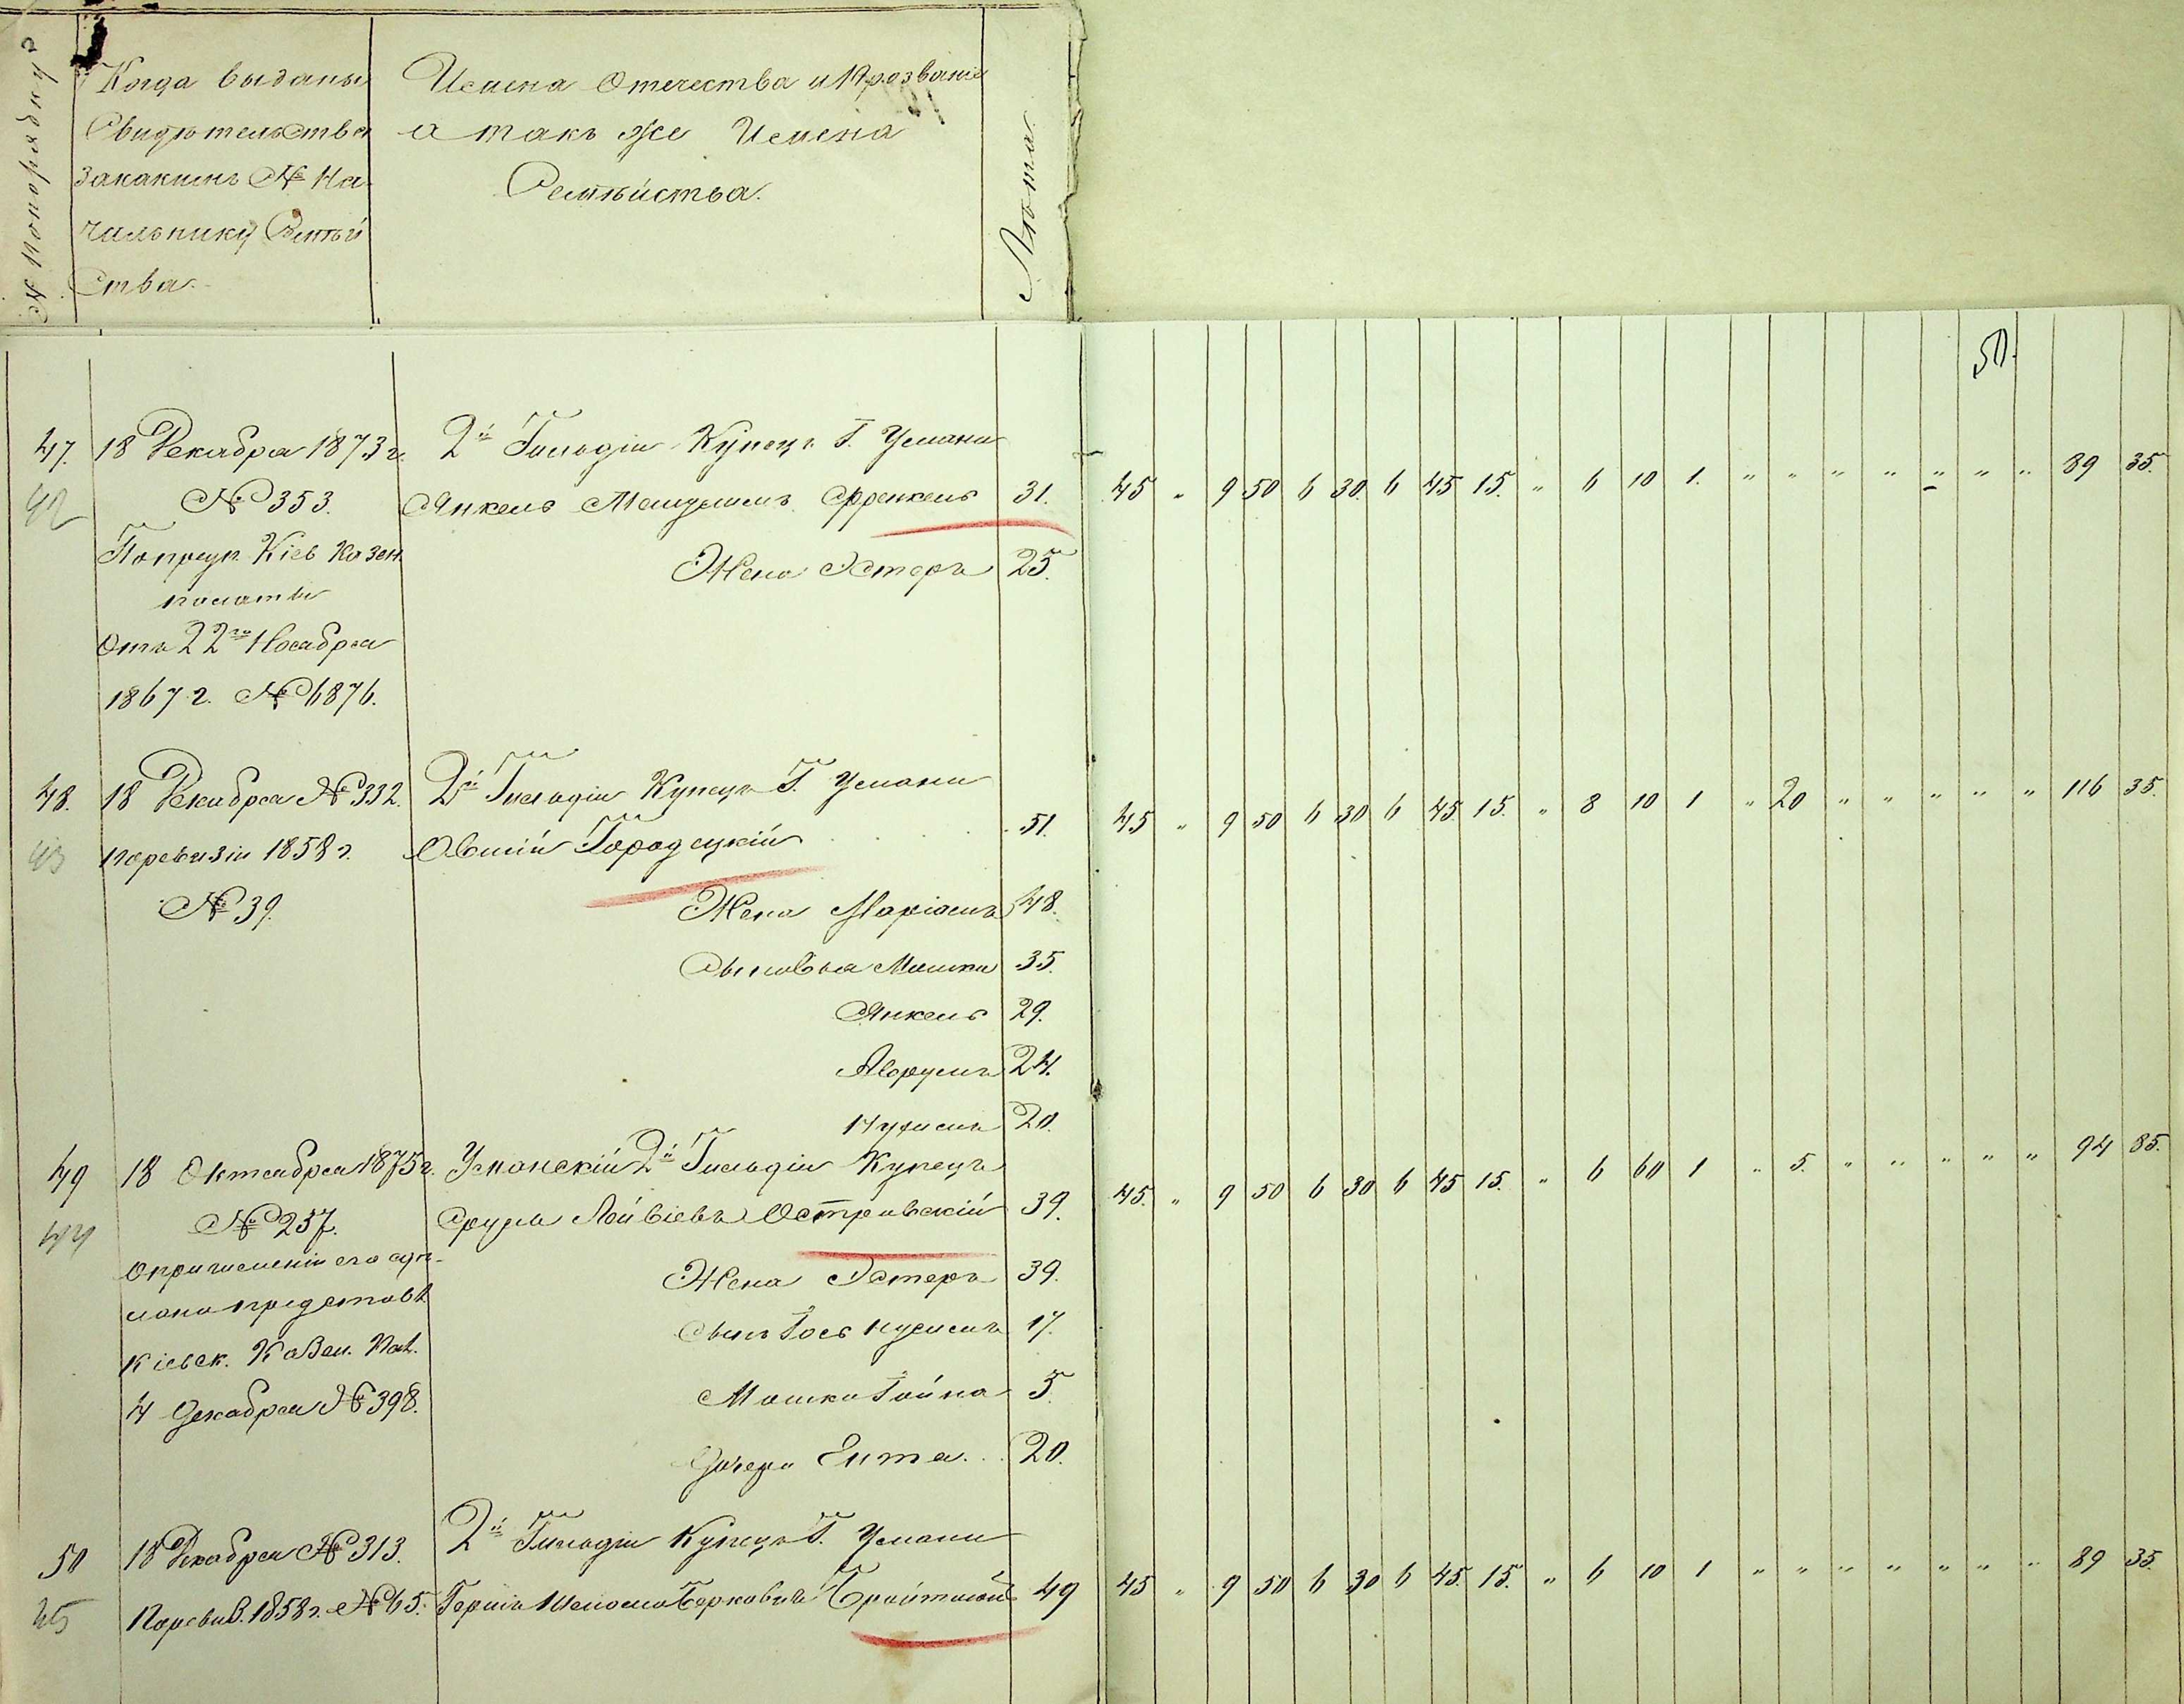 № Попорядку
Когда выданы
Свидѣтельства
Закакимъ № На
чильнику Семѣй
Ства.
Имена Отечества и Прозванія
а такъ же Имена
Семѣйства.
Лѣта.
50.
47. 18 Декабря 1873 г. 2й Гильдіи Купецъ Г. Умани
42 № 353. Янкель Френкель 31. 45 " 9 50 6 30. 6 45 15. " 6 10 1. " " " " " " " 89 35.
Попредп. Кіев Казен. Жена Эстеръ 25.
палаты
Отъ 22го Ноября
1867 г. № 6876.
48. 18 Декабря № 332. 2й Гильдіи Купецъ Г. Умани
43 поревизіи 1858 г. Овшій Городецкій 51. 45 " 9 50 6 30 6 45 15. " 8 10 1 " 20 " " " " " 116 35.
№ 39. Жена Маріамъ 48.
Сыновья Мошко 35.
Янкель 29.
Аврумъ 24.
Нухимъ 20.
49 18 Октября 1875 г. Уманскій 2й Гильдіи Купецъ
44 № 257. Сруль Лейбіевъ Островскій 39. 45. " 9 50 6 30 6 45 15. " 6 60 1 " 5. " " " " " 94 85.
Опричисленіи его Жена Эстеръ 39.
представл. Сынъ Гось Нухимъ 17.
Кіевск. Казен. Пал. Мошко 5.
4 Декабря № 398. Дочери Ента 20.
50 18 Декабря № 313. 2й Гильдіи Купецъ Г. Умани
45 Поревиз. 1858 г. № 65. Гершъ Шлиома Берковичъ 49 45 " 9 50 6 30 6 45. 15. " 6 10 1 " " " " " " " 89 35.